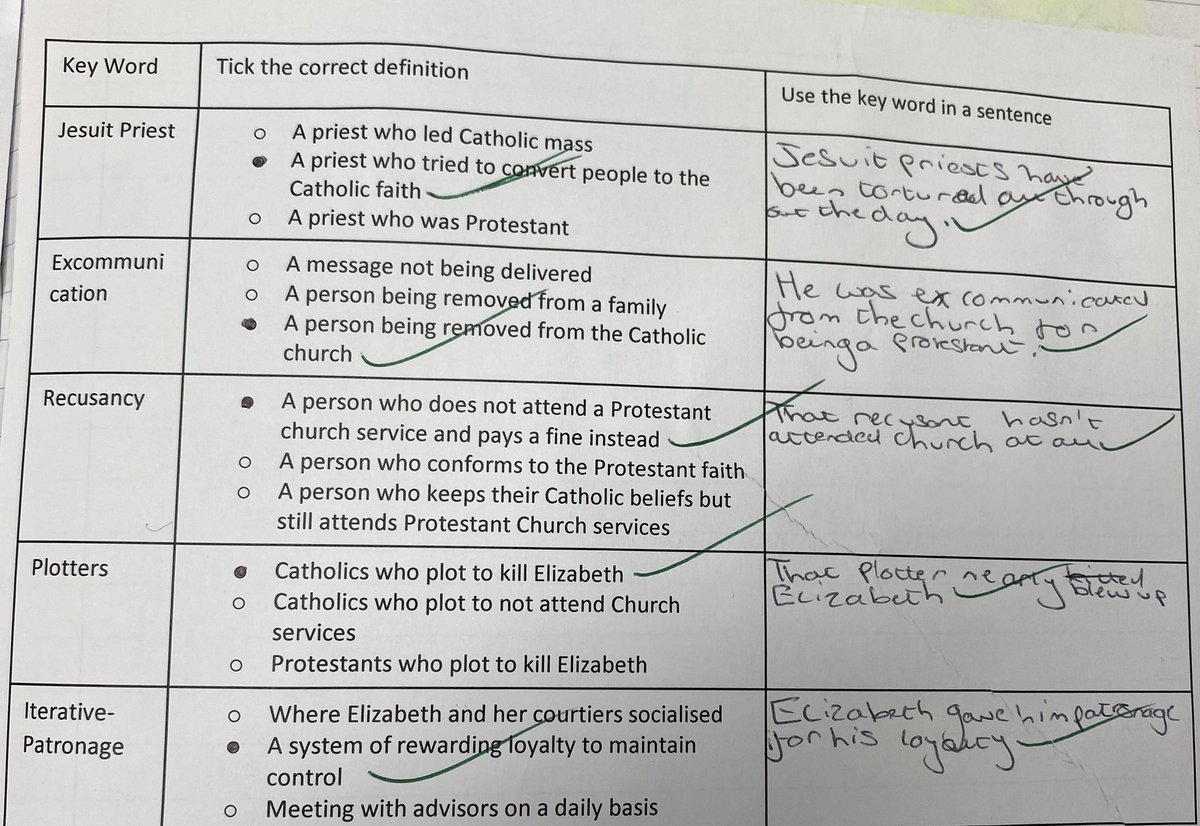 Key Word
Tick the correct definition
Use the key word in a sentence
Jesuit Priest
A priest who led Catholic mass
A priest who tried to convert people to the
Catholic faith
A priest who was Protestant
Jesuit priests have
been tortured through
out the day.
Excommuni
cation
A message not being delivered
A person being removed from a family
A person being removed from the Catholic
church
He was excommunicated
from the church for
being a protestant.
Recusancy
A person who does not attend a Protestant
church service and pays a fine instead
A person who conforms to the Protestant faith
A person who keeps their Catholic beliefs but
still attends Protestant Church services
That recusant hasn't
attended church at all
Plotters
Catholics who plot to kill Elizabeth
Catholics who plot to not attend Church
services
Protestants who plot to kill Elizabeth
That plotter nearly killed
blew up
Elizabeth
Iterative-
Patronage
Where Elizabeth and her courtiers socialised
A system of rewarding loyalty to maintain
control
Meeting with advisors on a daily basis
Elizabeth gave him patronage
for his loyalty